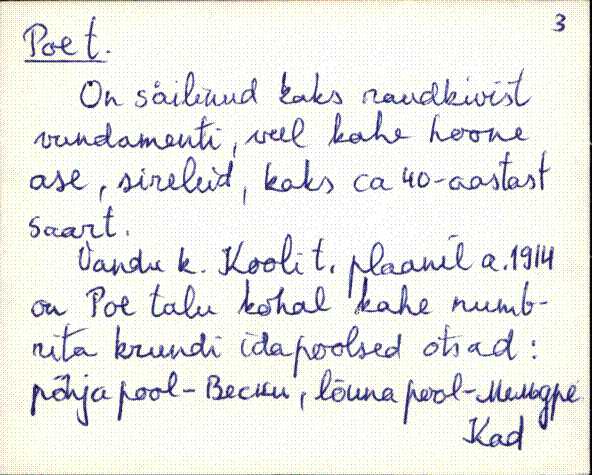 3
Poe t.
On säilinud kaks raudkivist
vundamenti, veel kahe hoone
ase, sireleid, kaks ca 40-aastast
saart.
Vandu k. Kooli t. plaanil a. 1914
on Poe talu kohal kahe numb-
rita krundi idapoolsed otsad:
põhja pool - Вески, lõuna pool - Мельдре
Kad